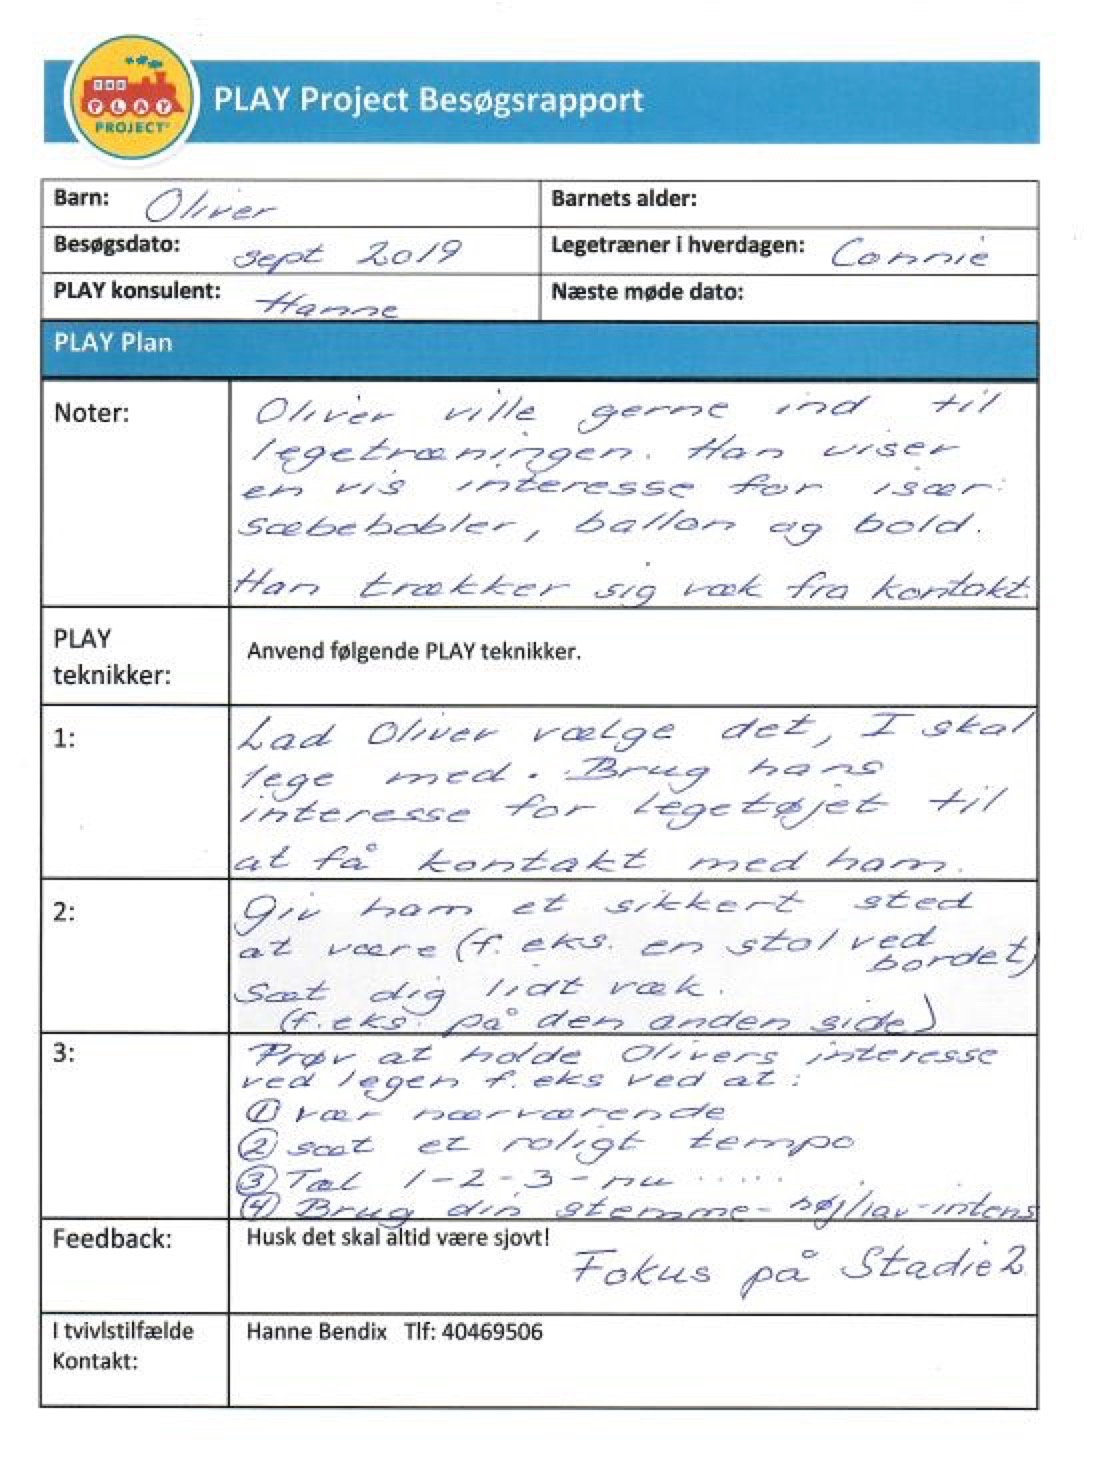 PLAY
PROJECT
PLAY Project Besøgsrapport
Barn: Oliver
Barnets alder:
Besøgsdato: sept 2019
Legetræner i hverdagen: Connie
PLAY konsulent: Hanne
Næste møde dato:
PLAY Plan
Noter:
Oliver ville gerne ind til
legetræningen. Han viser
en vis interesse for især:
sæbebobler, ballon og bold.
Han trækker sig væk fra kontakt.
PLAY
teknikker:
Anvend følgende PLAY teknikker.
1:
Lad Oliver vælge det, I skal
lege med. Brug hans
interesse for legetøjet til
at få kontakt med ham.
2:
Giv ham et sikkert sted
at være (f. eks. en stol ved
bordet)
Sæt dig lidt væk.
(f.eks. på den anden side)
3:
Prøv at holde Olivers interesse
ved legen f. eks ved at:
① vær nærværende
② sæt et roligt tempo
③ Tæl 1-2-3-nu .....
④ Brug din stemme- høj/lav-intens
Feedback:
Husk det skal altid være sjovt!
Fokus på Stadie 2
I tvivlstilfælde
Kontakt:
Hanne Bendix Tlf: 40469506